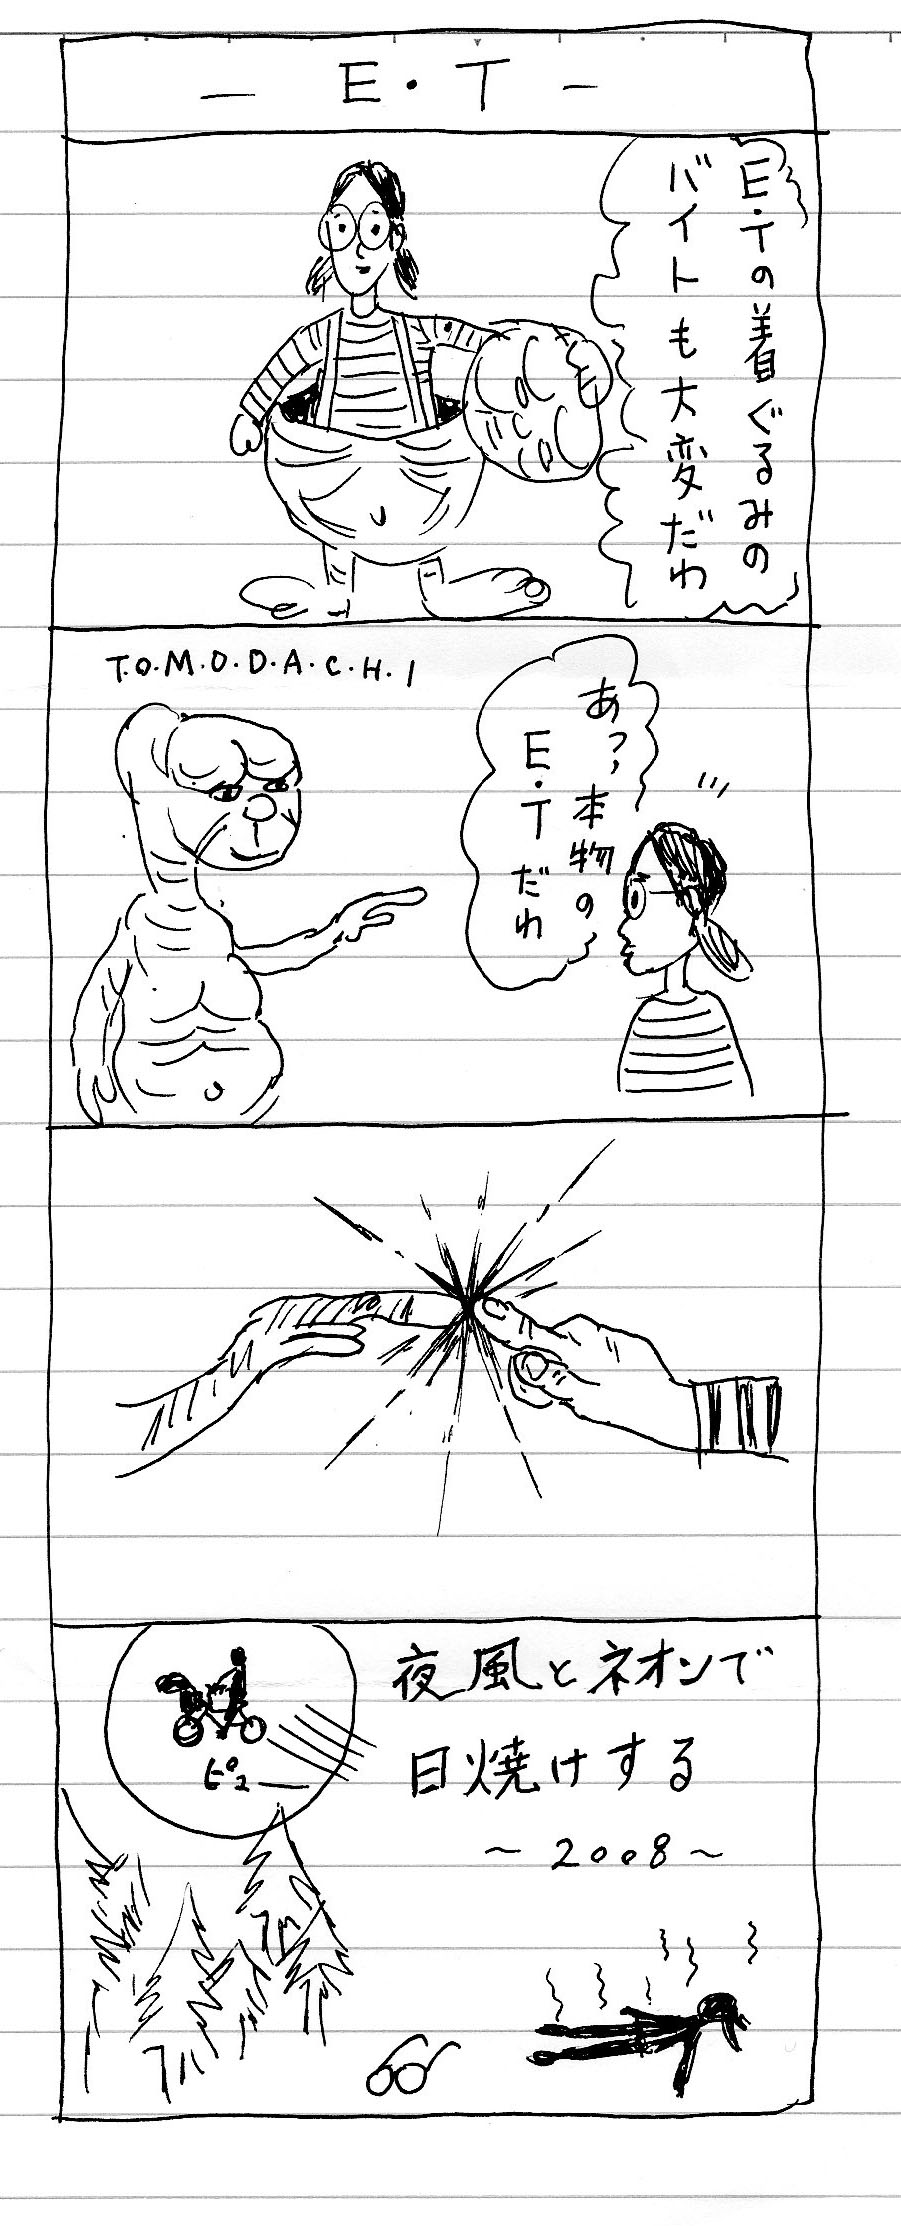 — E・T —
E.Tの着ぐるみの
バイトも大変だわ
T.O.M.O.D.A.C.H.I
あ?本物の
E.Tだわ
夜風とネオンで
日焼けする
～2008～
ピュー